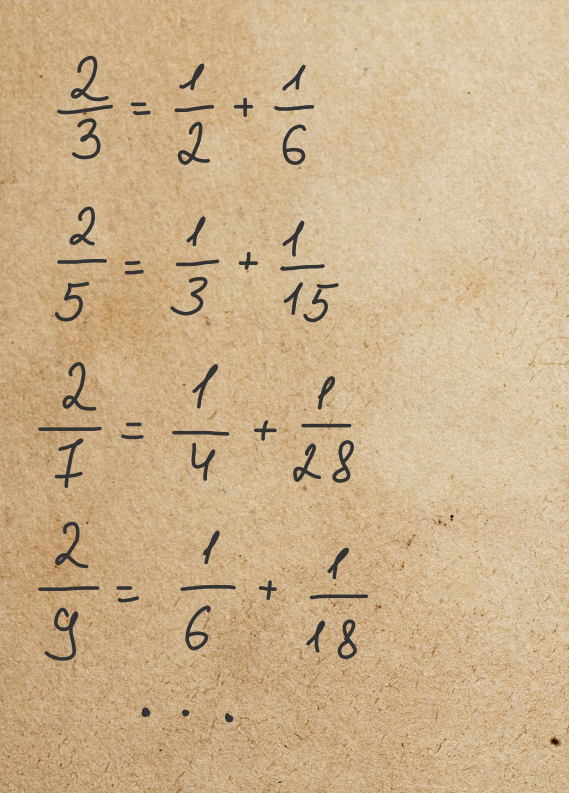 2/3 = 1/2 + 1/6
2/5 = 1/3 + 1/15
2/7 = 1/4 + 1/28
2/9 = 1/6 + 1/18
...